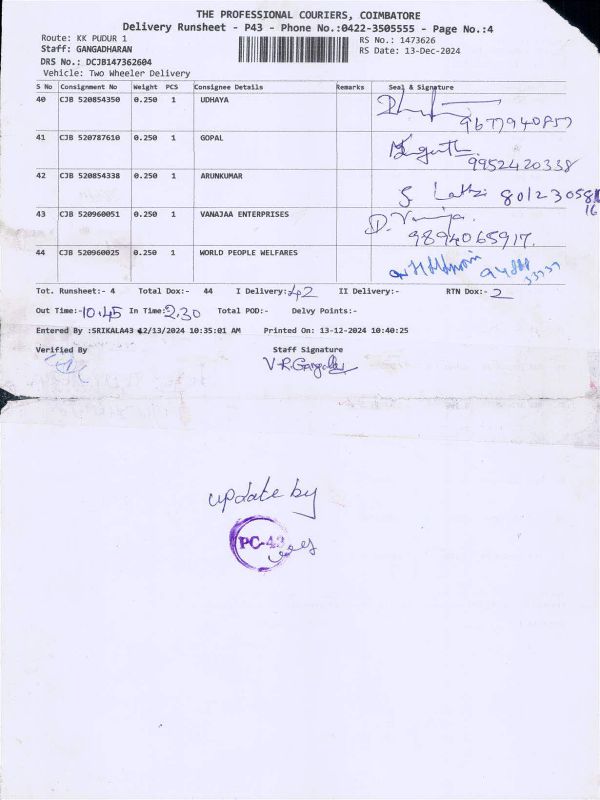 THE PROFESSIONAL COURIERS, COIMBATORE
Delivery Runsheet - P43 - Phone No.:0422-3505555 - Page No.:4
Route: KK PUDUR 1 RS No.: 1473626
Staff: GANGADHARAN RS Date: 13-Dec-2024
DRS No.: DCJB147362604
Vehicle: Two Wheeler Delivery
S No Consignment No Weight PCS Consignee Details Remarks Seal & Signature
40 CJB 520854350 0.250 1 UDHAYA
9677940857
41 CJB 520787610 0.250 1 GOPAL
9952420338
42 CJB 520854338 0.250 1 ARUNKUMAR
43 CJB 520960051 0.250 1 VANAJAA ENTERPRISES D. Vanaja
9894065917.
44 CJB 520960025 0.250 1 WORLD PEOPLE WELFARES
Tot. Runsheet:- 4 Total Dox:- 44 I Delivery:- 42 II Delivery:- RTN Dox:- 2
Out Time:- 10.45 In Time:- 2.30 Total POD:- Delvy Points:-
Entered By :SRIKALA43 12/13/2024 10:35:01 AM Printed On: 13-12-2024 10:40:25
Verified By Staff Signature
update by
PC-43